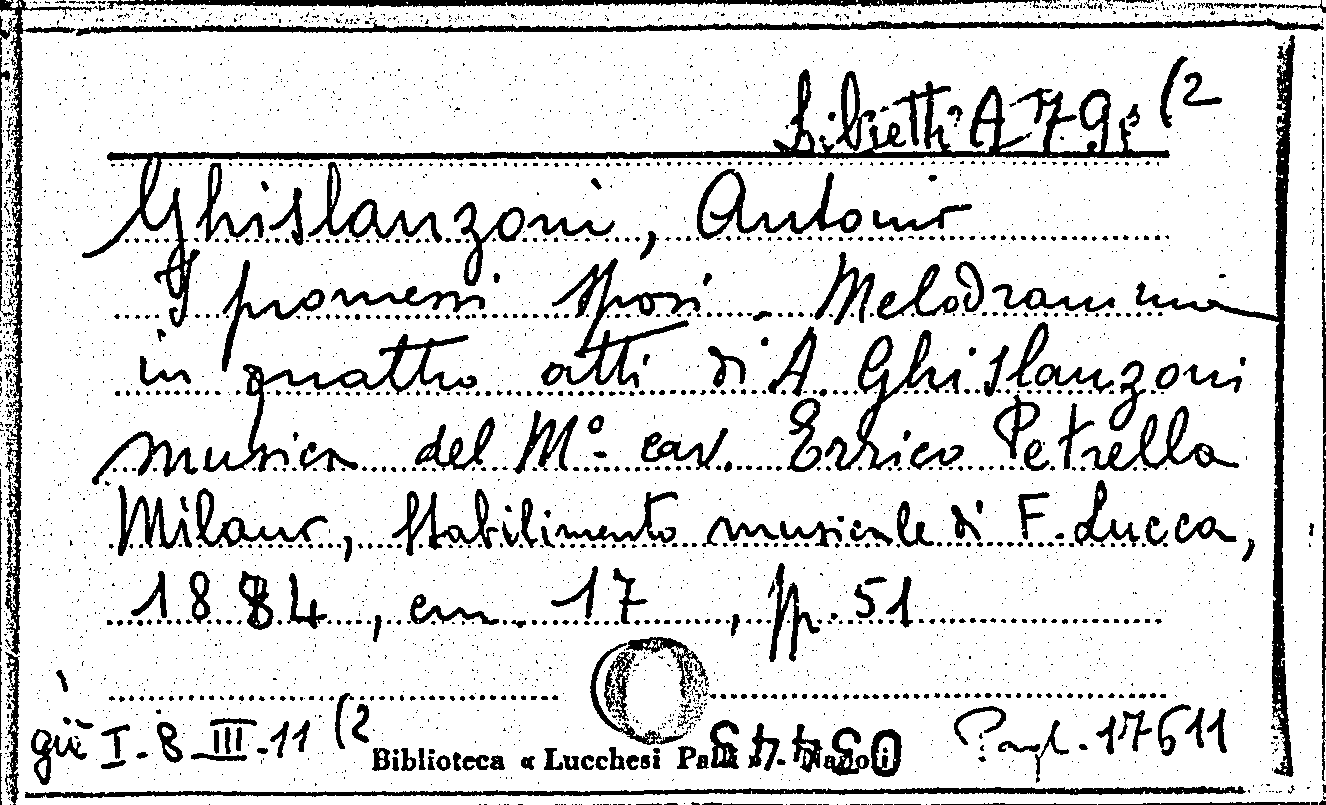 Libretti A 79 (2
Ghislanzoni, Antonio
I promessi sposi. Melodramma
in quattro atti di A. Ghislanzoni
musica del M.º cav. Errico Petrella
Milano, Stabilimento musicale di F. Lucca,
1884, cm. 17, pp. 51
già I-8-III-11 (2
Biblioteca « Lucchesi Palli » - Napoli
Pagl. 17611